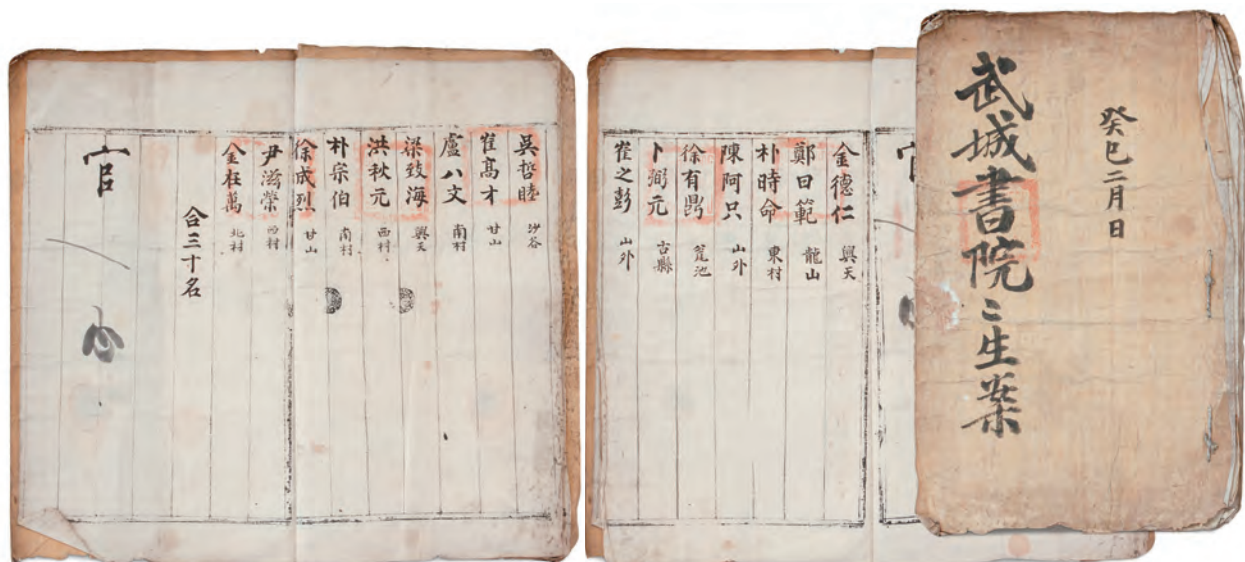 癸巳二月日
武城書院〻生案
金德仁 興天
鄭日範 龍山
朴時命 東村
陳阿只 山外
徐有鼎 筬池
卜弼元 古縣
崔之彭 山外
吳哲睦 沙谷
崔高才 甘山
盧八文 南村
梁致海 興天
洪秋元 西村
朴宗伯 南村
徐成烈 甘山
尹滋榮 西村
金在萬 北村
合三十名
官